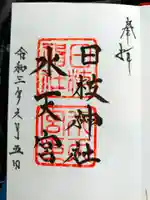 奉拝
日枝神社
水天宮
令和三年五月五日